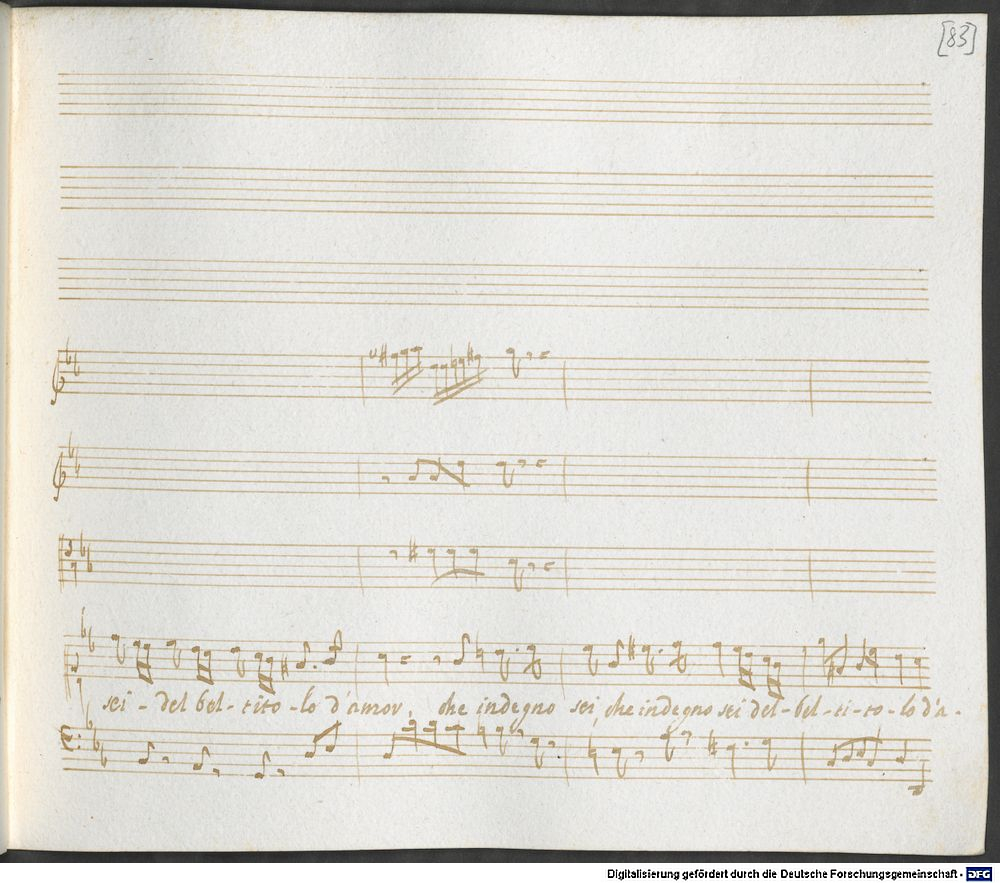 [83]
sei - del bel - tito - lo d'amor, che indegno sei, che indegno sei del - bel - ti - to - lo d'a -
Digitalisierung gefördert durch die Deutsche Forschungsgemeinschaft - DFG